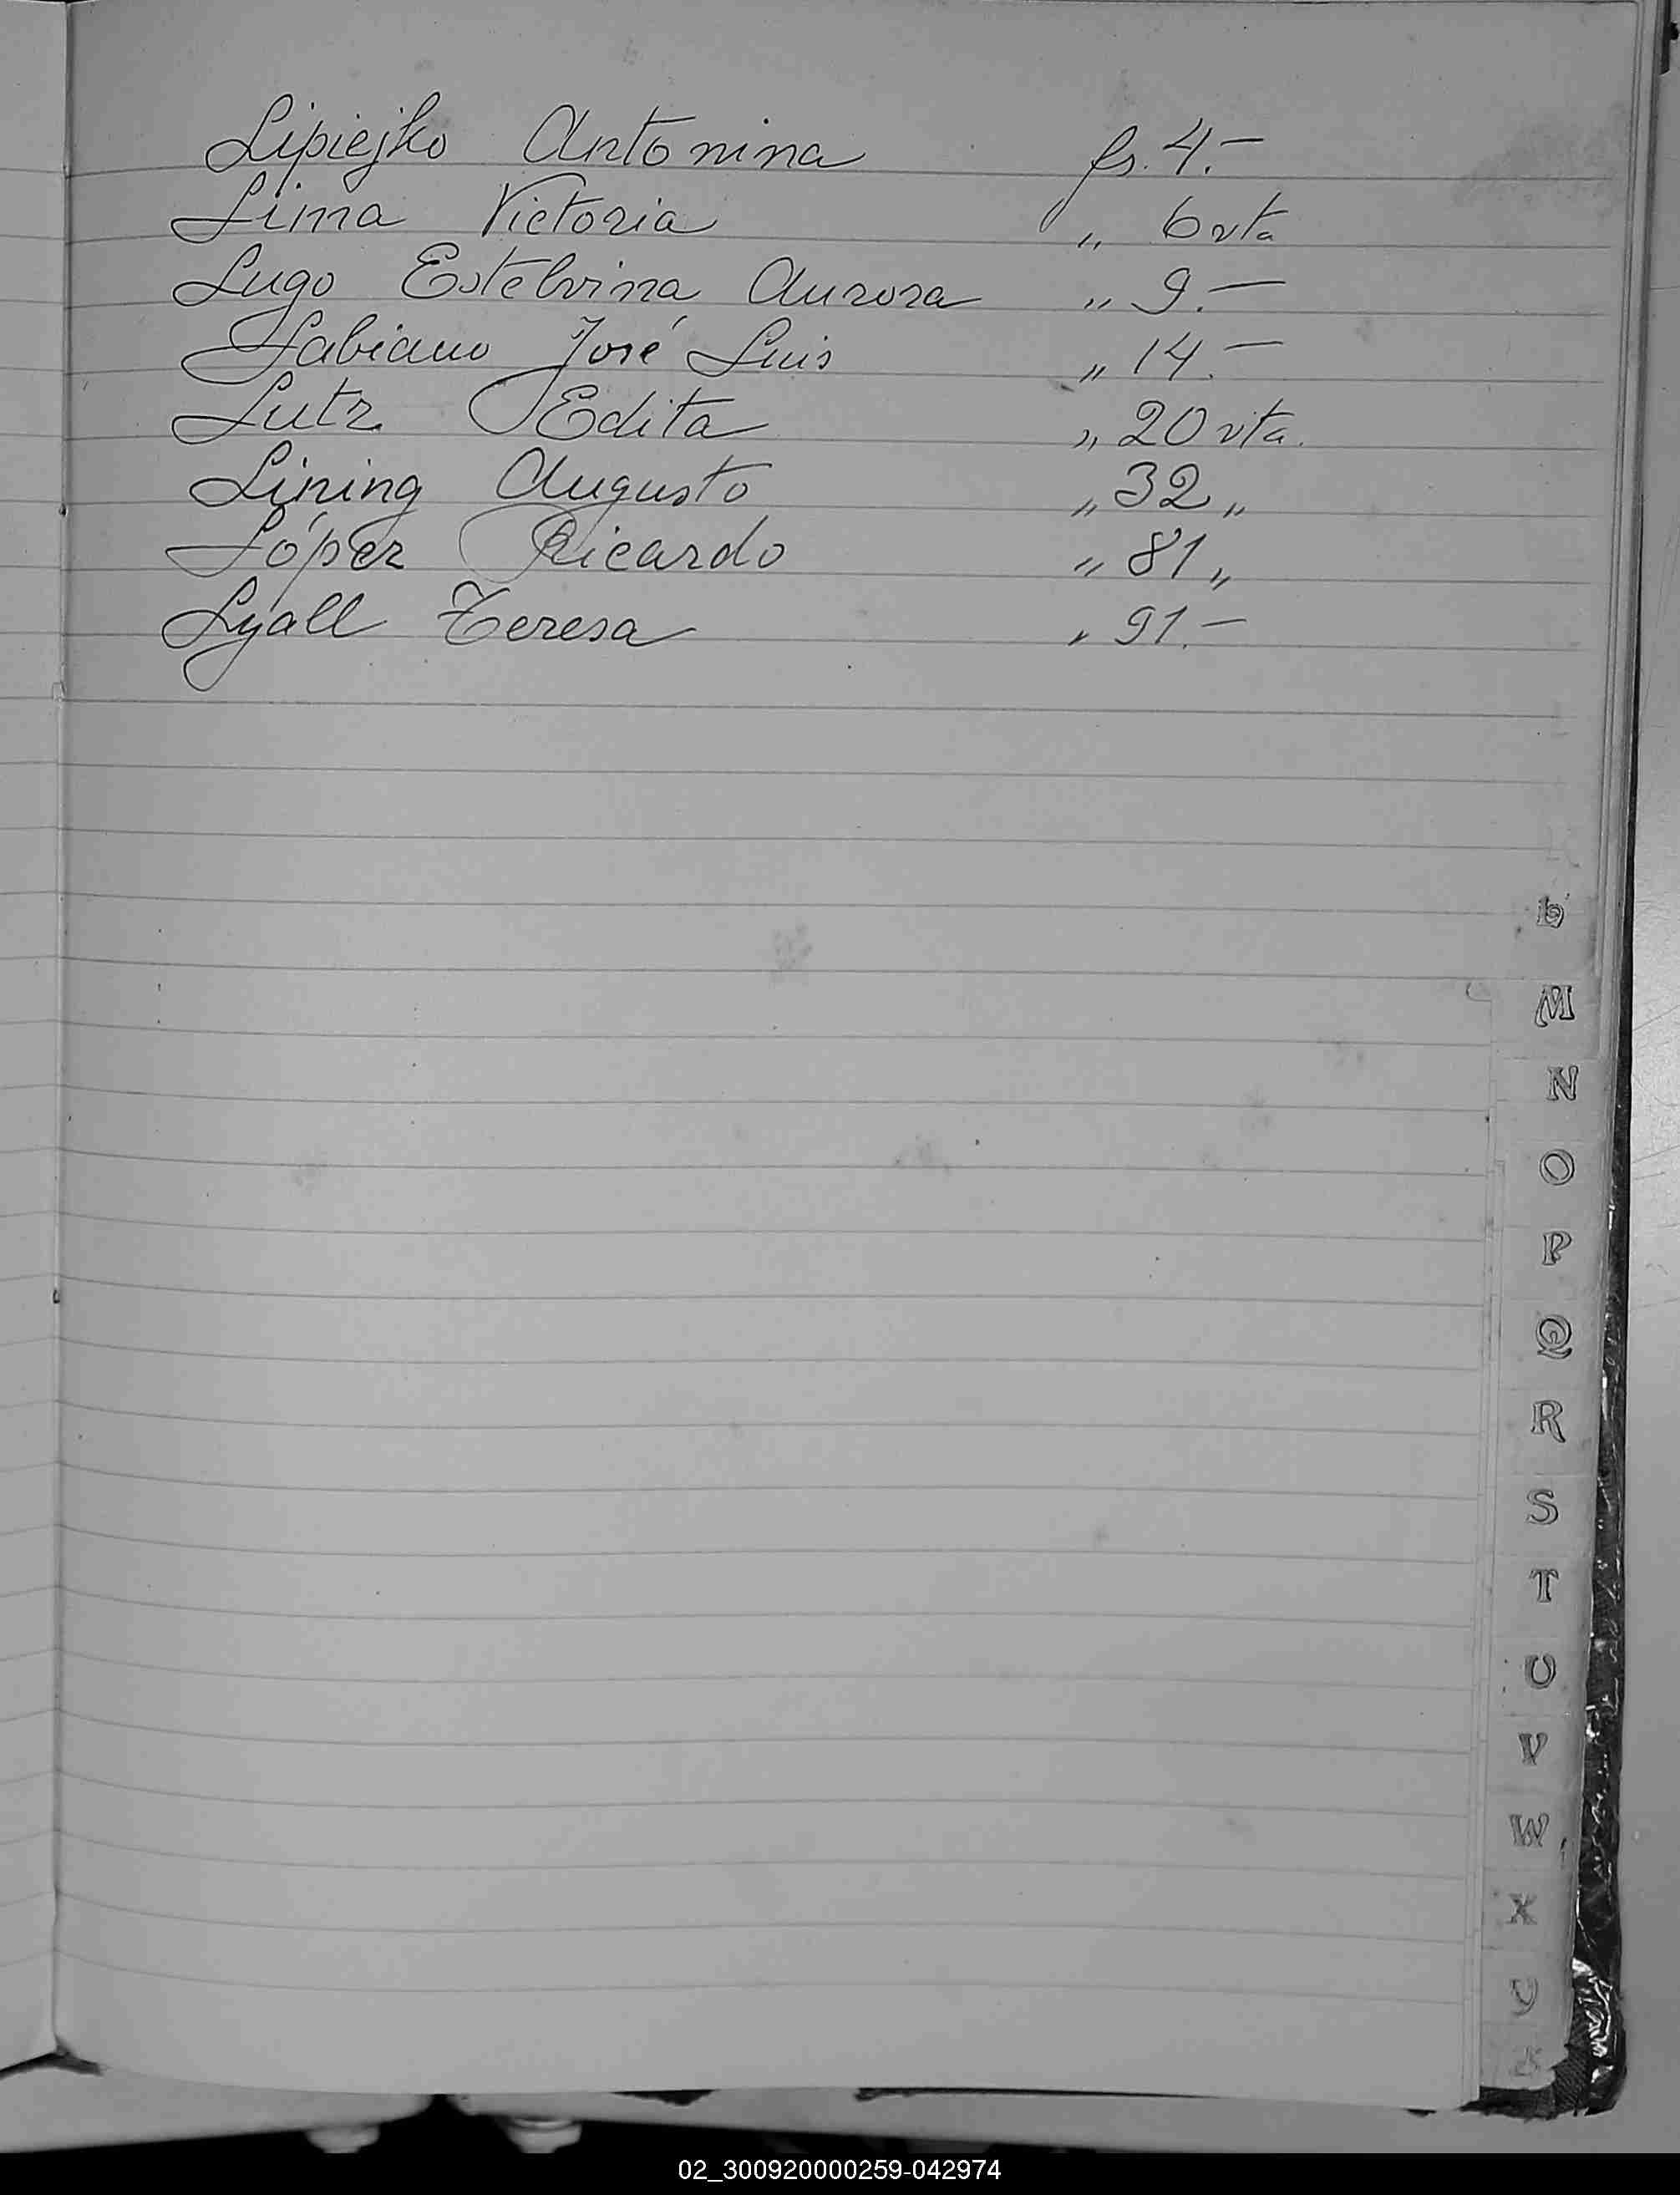 Lipiejko Antonina fs. 4.—
Lima Victoria „ 6 vta
Lugo Estelvina Aurora „ 9.—
Labiano José Luis „ 14.—
Lutz Edita „ 20 vta.
Lining Augusto „ 32 „
López Ricardo „ 81 „
Lyall Teresa „ 91.—
M
N
O
P
Q
R
S
T
U
V
W
X
Y
02_300920000259-042974